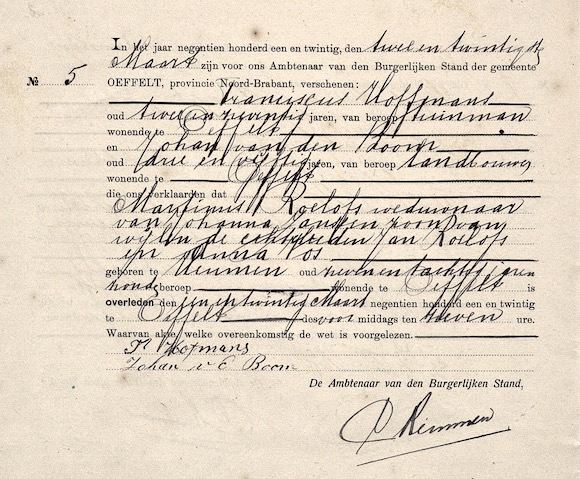 In het jaar negentien honderd een en twintig, den twee en twintigste
Maart zijn voor ons Ambtenaar van den Burgerlijken Stand der gemeente
№ 5 OEFFELT, provincie Noord-Brabant, verschenen:
Franciscus Hoffmans
oud twee en zeventig jaren, van beroep tuinman
wonende te Oeffelt
en Johan van den Boom
oud drie en vijftig jaren, van beroep landbouwer
wonende te Oeffelt
die ons verklaarden dat
Martinus Roelofs weduwnaar
van Johanna Jansen zoon van
wijlen de echtelieden Jan Roelofs
en Anna Vos
geboren te oud negen en tachtig jaren
beroep wonende te Oeffelt is
overleden den een en twintig Maart negentien honderd een en twintig
te Oeffelt des voor middags ten zeven ure.
Waarvan akte, welke overeenkomstig de wet is voorgelezen.
Fs Hofmans
Johan v. d. Boom
De Ambtenaar van den Burgerlijken Stand,